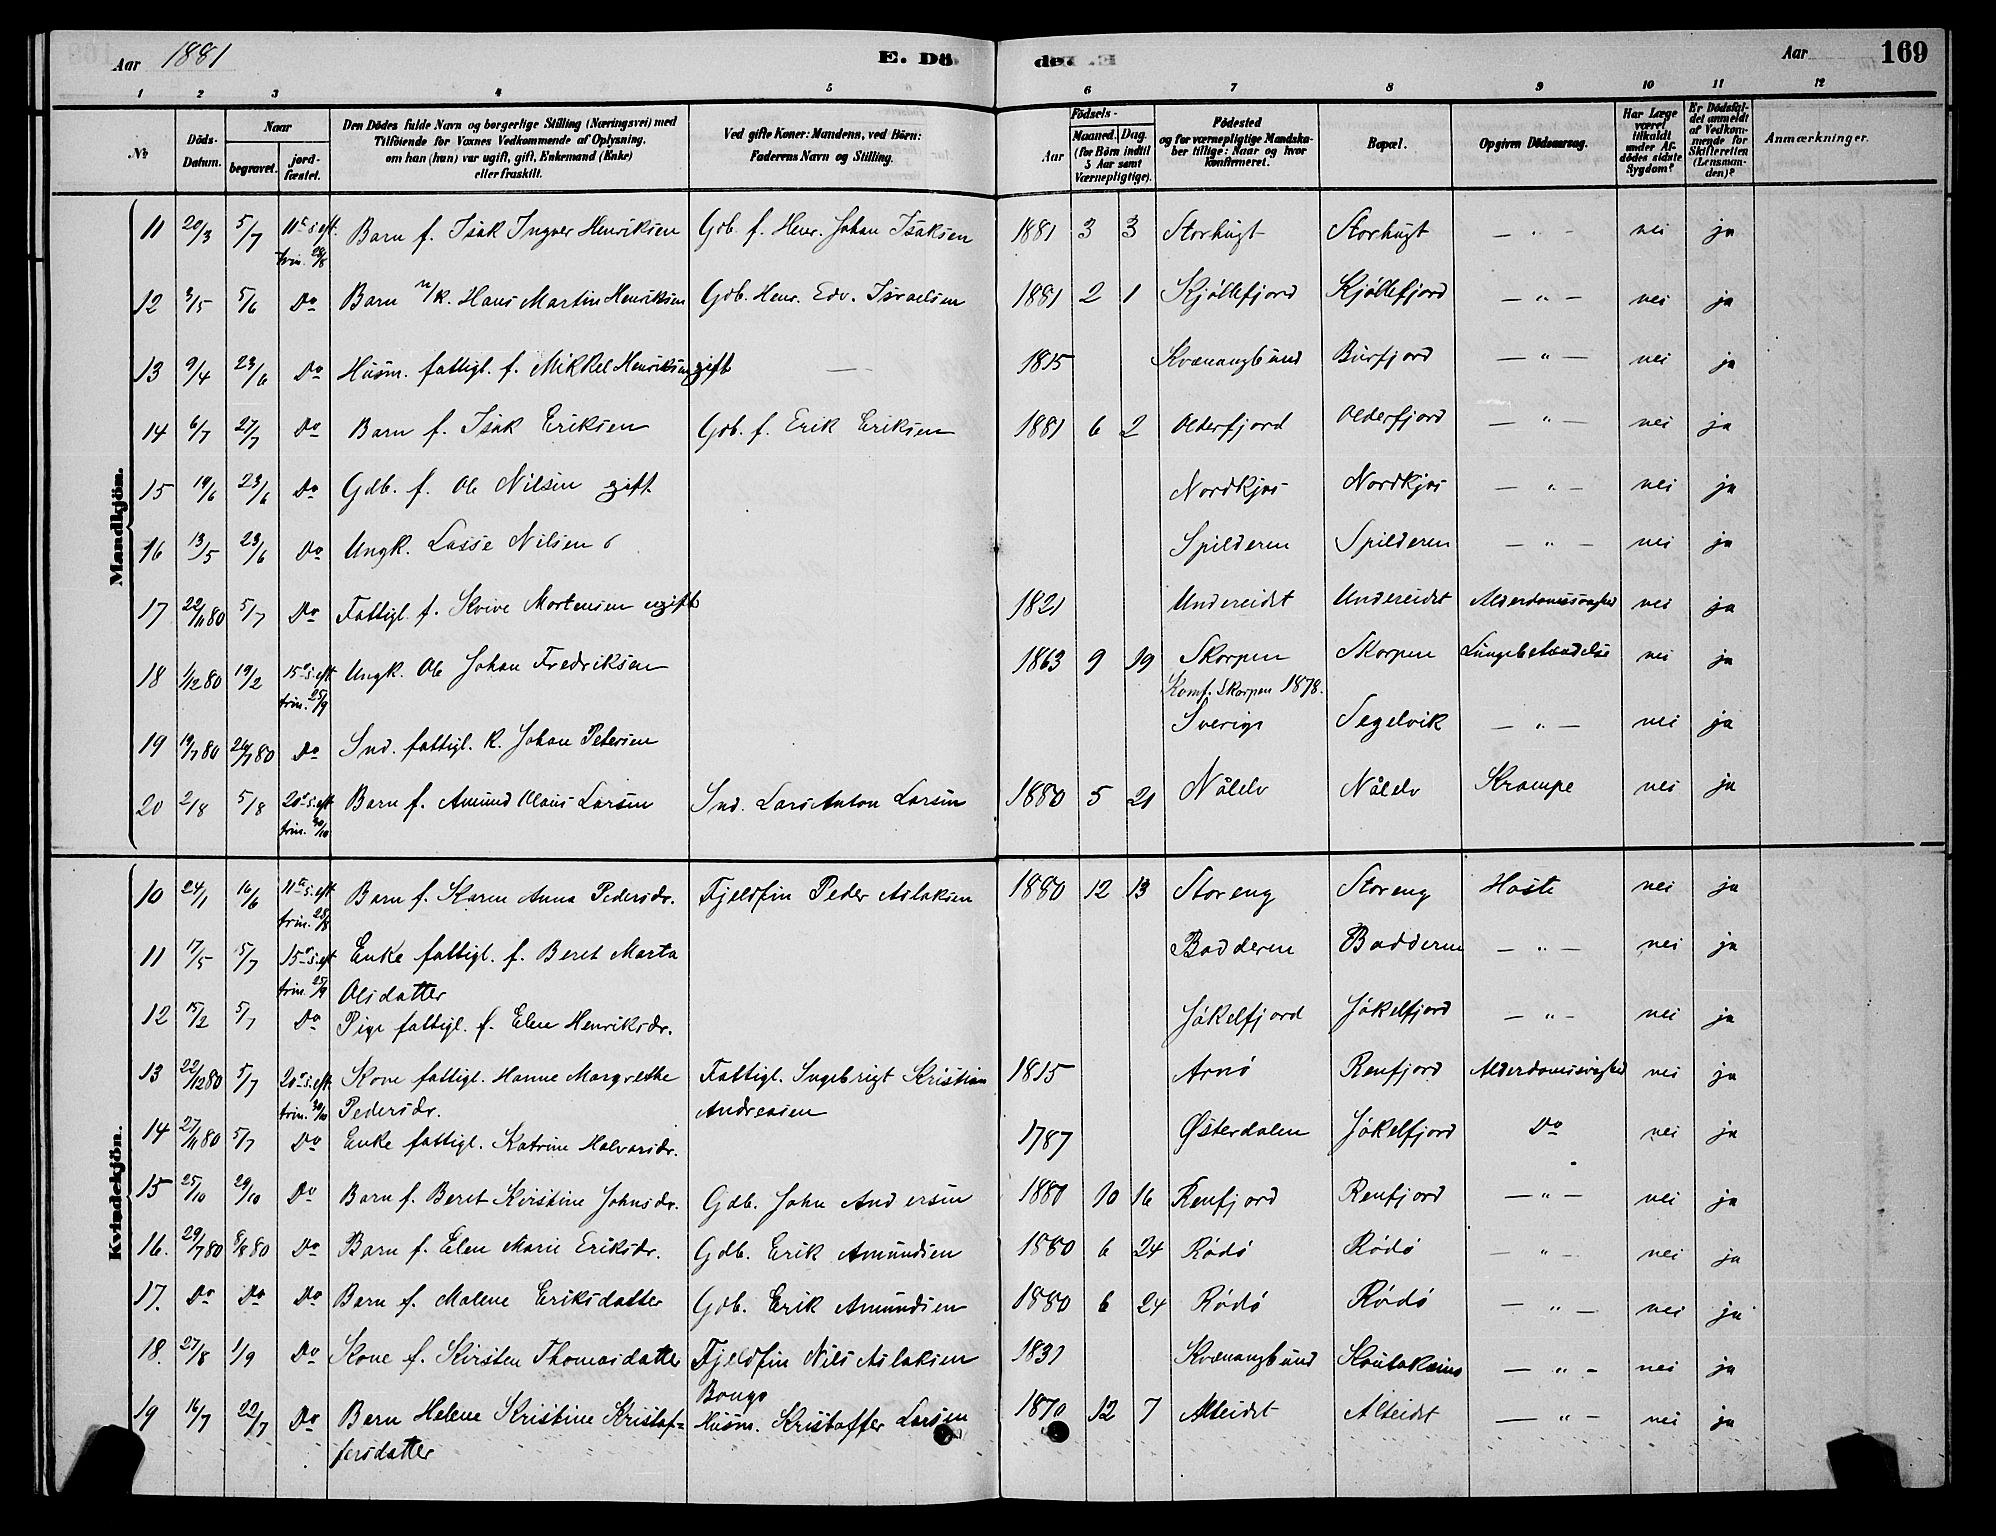 Aar 1881 E. Dö- de. Aar 169
1 2 3 4 5 6 7 8 9 10 11 12
№
Döds-Datum.
Naar
begravet.
jord-fæstet.
Den Dödes fulde Navn og borgerlige Stilling (Næringsvei) med
Tilföiende for Voxnes Vedkommende af Oplysning,
om han (hun) var ugift, gift, Enkemand (Enke)
eller fraskilt.
Ved gifte Koner: Mandens, ved Börn:
Faderens Navn og Stilling.
Födsels-
Aar
Maaned. Dag.
(for Börn indtil
5 Aar samt
Værnepligtige).
Födested
og for værnepligtige Mandska-
ber tillige: Naar og hvor
konfirmeret.
Bopæl.
Opgiven Dödsaarsag.
Har Læge
været
tilkaldt
under Af-
dödes sidste
Sygdom?
Er Dödsfal-
det anmeldt
af Vedkom-
mende for
Skifteretten
(Lensman-
den)?
Anmærkninger.
Mandkjön.
11 20/3 5/7 11te s. eft. trin. 28/8 Barn f. Isak Ingver Henriksen Gdb. f. Henr. Johan Isaksen 1881 3 3 Storbugt Storbugt — " — nei ja
12 3/5 5/6 Do Barn n/k. Hans Martin Henriksen Gdb. Henr. Edv. Israelsen 1881 2 1 Kjøllefjord Kjøllefjord — " — nei ja
13 9/4 23/6 Do Husm. fattigl. f. Mikkel Henriksen gift — 1815 Kvænangbund Burfjord — " — nei ja
14 6/7 27/7 Do Barn f. Isak Eriksen Gdb. f. Erik Eriksen 1881 6 2 Olderfjord Olderfjord — " — nei ja
15 19/6 23/6 Do Gdb. f. Ole Nilsen gift Nordkjos Nordkjos — " — nei ja
16 13/5 23/6 Do Ungk. Lasse Nilsen Spilderen Spilderen — " — nei ja
17 22/11 80 5/7 Do Fattigl. f. Mortensen ugift 1821 Undereidet Undereidet Alderdomssvaghed nei ja
18 1/12 80 19/2 15de s. eft. trin. 25/9 Ungk. Ole Johan Fredriksen 1863 9 19 Skorpen Skorpen Lungebetændelse nei ja
Konf. Skorpen 1878.
19 19/7 80 26/7 80 Do Ind. fattigl. k. Johan Petersen Sverige Segelvik — " — nei ja
20 2/8 5/8 20de s. eft. trin. 30/10 Barn f. Amund Olaus Larsen Ind. Lars Anton Larsen 1880 5 21 Nålelv Nålelv Krampe nei ja
Kvindekjön.
10 24/1 16/6 11te s. eft. trin. 28/8 Barn f. Karen Anna Pedersdr. Fjeldfin Peder Aslaksen 1880 12 13 Storeng Storeng Hoste nei ja
11 17/5 15/7 15de s. eft. trin. 25/9 Enke fattigl. f. Beret Marta
Olsdatter Badderen Badderen — " — nei ja
12 15/2 5/7 Do Pige fattigl. f. Elen Henriksdr. Jøkelfjord Jøkelfjord — " — nei ja
13 22/12 80 5/7 20de s. eft. trin. 30/10 Kone fattigl. Hanne Margrethe
Pedersdr. Fattigl. Ingebrigt Kristian
Andreasen 1815 Arnø Reinfjord Alderdomssvaghed nei ja
14 27/11 80 5/7 Do Enke fattigl. Katrine Halvorsdr. 1787 Østerdalen Jøkelfjord Do nei ja
15 25/10 29/10 Do Barn f. Beret Kirstine Johnsdr. Gdb. John Andersen 1880 10 16 Renfjord Renfjord — " — nei ja
16. 29/7 80 8/8 80 Do Barn f. Elen Marie Eriksdr. Gdb. Erik Amundsen 1880 6 24 Rødø Rødø — " — nei ja
17. Do Do Do Barn f. Malene Eriksdatter Gdb. Erik Amundsen 1880 6 24 Rødø Rødø — " — nei ja
18. 27/8 1/9 Do Kone f. Kirsten Thomasdatter Fjeldfin Nils Aslaksen
Bongo 1831 Kvænangbund Koutokeino — " — nei ja
19 16/7 22/7 Do Barn Helene Kristine Kristof-
fersdatter Husm. Kristoffer Larsen 1870 12 7 Alteidet Alteidet — " — nei ja